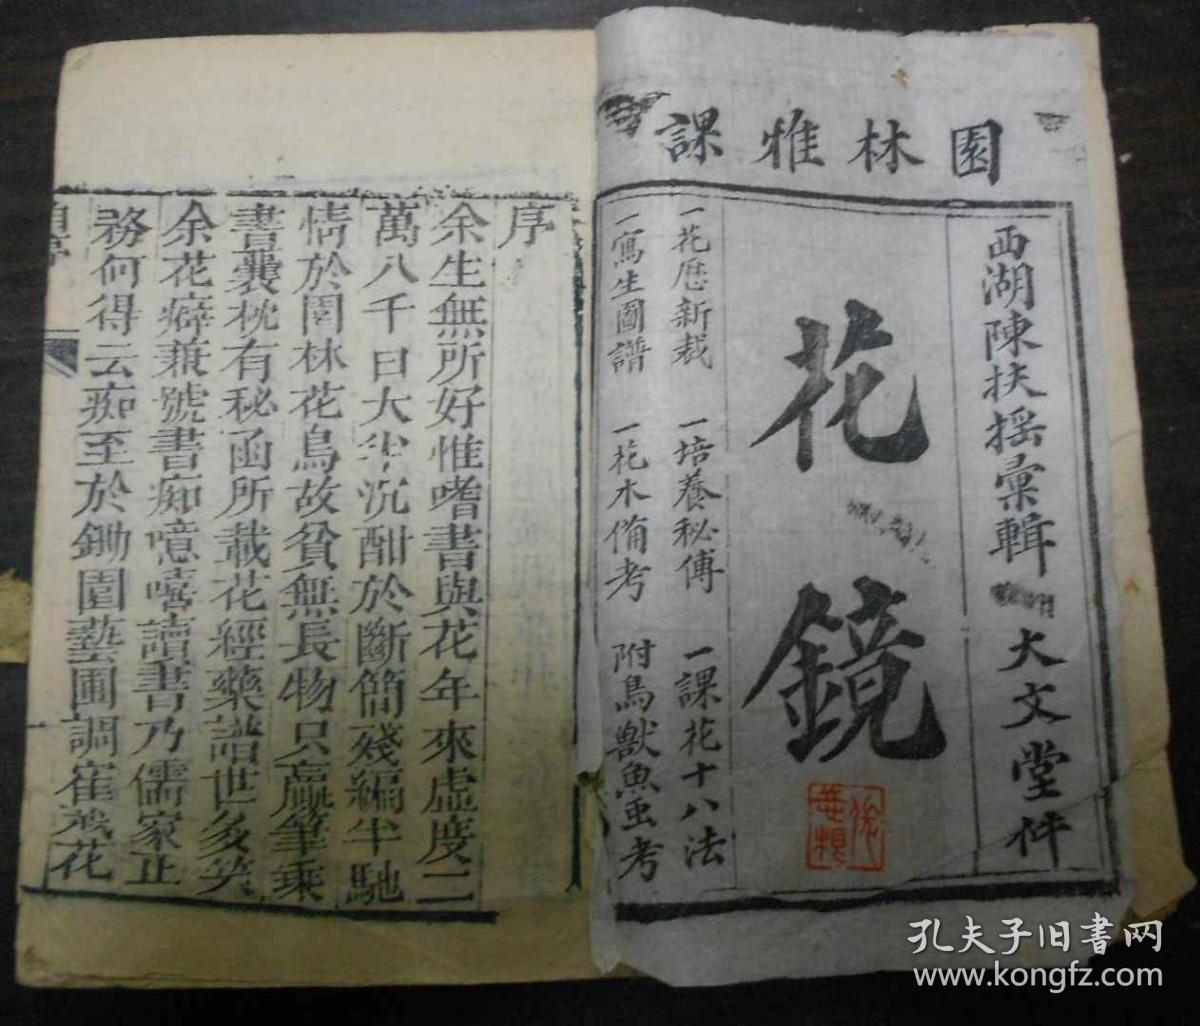 園林雅課
西湖陳扶摇彙輯
大文堂梓
花鏡
一花歷新裁 一培養秘傳 一課花十八法
一寫生圖譜 一花木俻考 附鳥獸魚虫考
序
余生無所好惟嗜書與花年來虛度二
萬八千日大半沉酣於斷簡殘編半馳
情於園林花鳥故貧無長物只贏筆乗
書囊枕有秘函所載花經藥譜世多笑
余花癖兼號書痴噫嘻讀書乃儒家正
務何得云痴至於鋤園藝圃調雀栽花
自序
孔夫子旧书网
www.kongfz.com